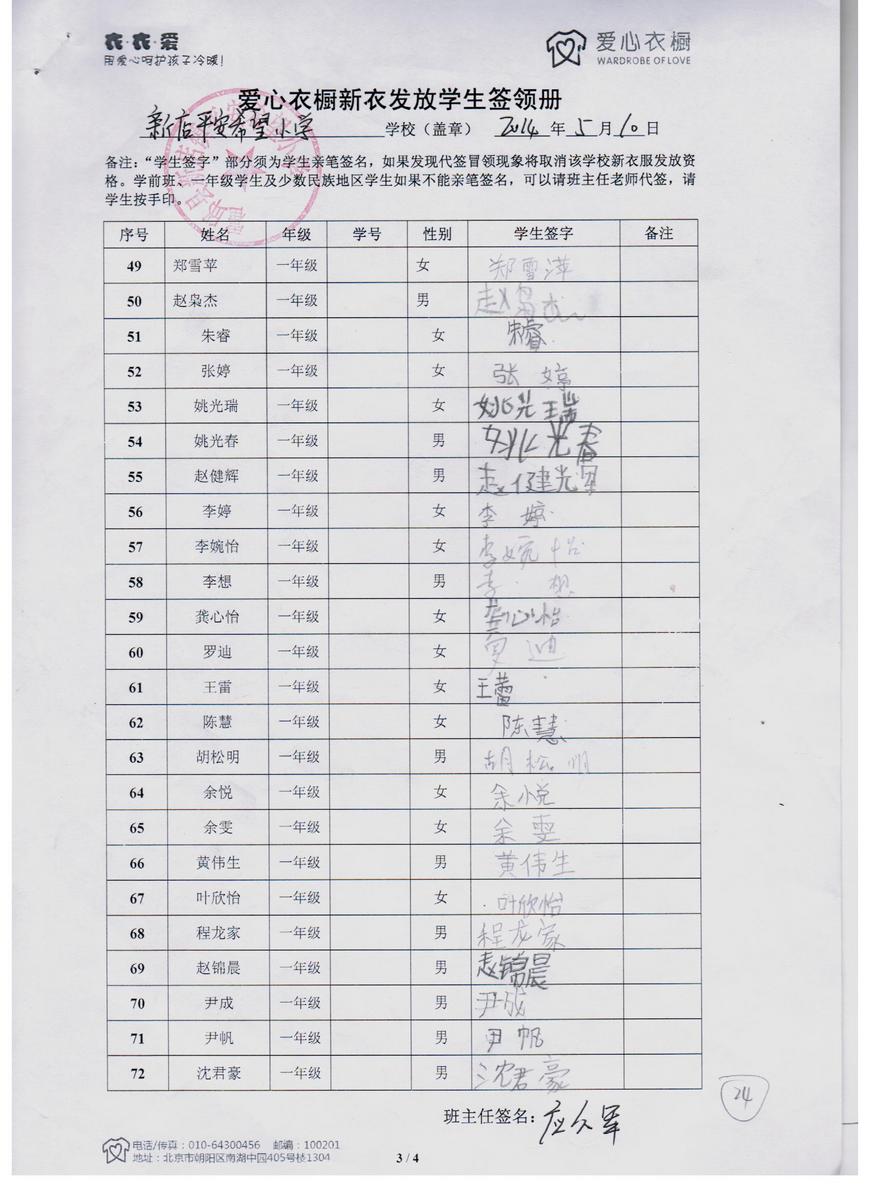 衣·衣·爱
用爱心呵护孩子冷暖!
爱心衣橱
WARDROBE OF LOVE
爱心衣橱新衣发放学生签领册
新店平安希望小学 学校（盖章） 2014 年 5 月 10 日
备注：“学生签字”部分须为学生亲笔签名，如果发现代签冒领现象将取消该学校新衣服发放资
格。学前班、一年级学生及少数民族地区学生如果不能亲笔签名，可以请班主任老师代签，请
学生按手印。
序号 姓名 年级 学号 性别 学生签字 备注
49 郑雪苹 一年级 女 郑雪萍
50 赵枭杰 一年级 男 赵枭杰
51 朱睿 一年级 女 朱睿
52 张婷 一年级 女 张婷
53 姚光瑞 一年级 女 姚光瑞
54 姚光春 一年级 男 姚光春
55 赵健辉 一年级 男 赵健辉
56 李婷 一年级 女 李婷
57 李婉怡 一年级 女 李婉怡
58 李想 一年级 男 李想
59 龚心怡 一年级 女 龚心怡
60 罗迪 一年级 女 罗迪
61 王雷 一年级 女 王蕾
62 陈慧 一年级 女 陈慧
63 胡松明 一年级 男 胡松明
64 余悦 一年级 女 余悦
65 余雯 一年级 女 余雯
66 黄伟生 一年级 男 黄伟生
67 叶欣怡 一年级 女 叶欣怡
68 程龙家 一年级 男 程龙家
69 赵锦晨 一年级 男 赵锦晨
70 尹成 一年级 男 尹成
71 尹帆 一年级 男 尹帆
72 沈君豪 一年级 男 沈君豪
24
班主任签名：应久军
电话/传真：010-64300456 邮编：100201
地址：北京市朝阳区南湖中园405号楼1304
3 / 4